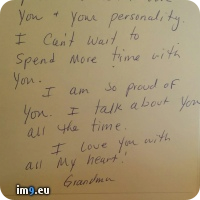 You + your personality.
I Can't wait to
Spend more time with
You.
I am so proud of
You. I talk about you
all the time.
I love you with
all My heart!
Grandma
im9.eu